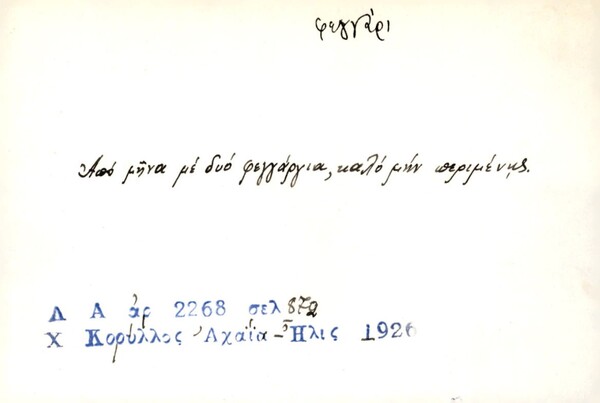 φεγγάρι
Ἀπό μῆνα μέ δυό φεγγάργια, καλό μήν περιμένῃς.
Λ Α ἀρ 2268 σελ 872
Χ Κορύλλος Ἀχαΐα-Ἦλις 1926